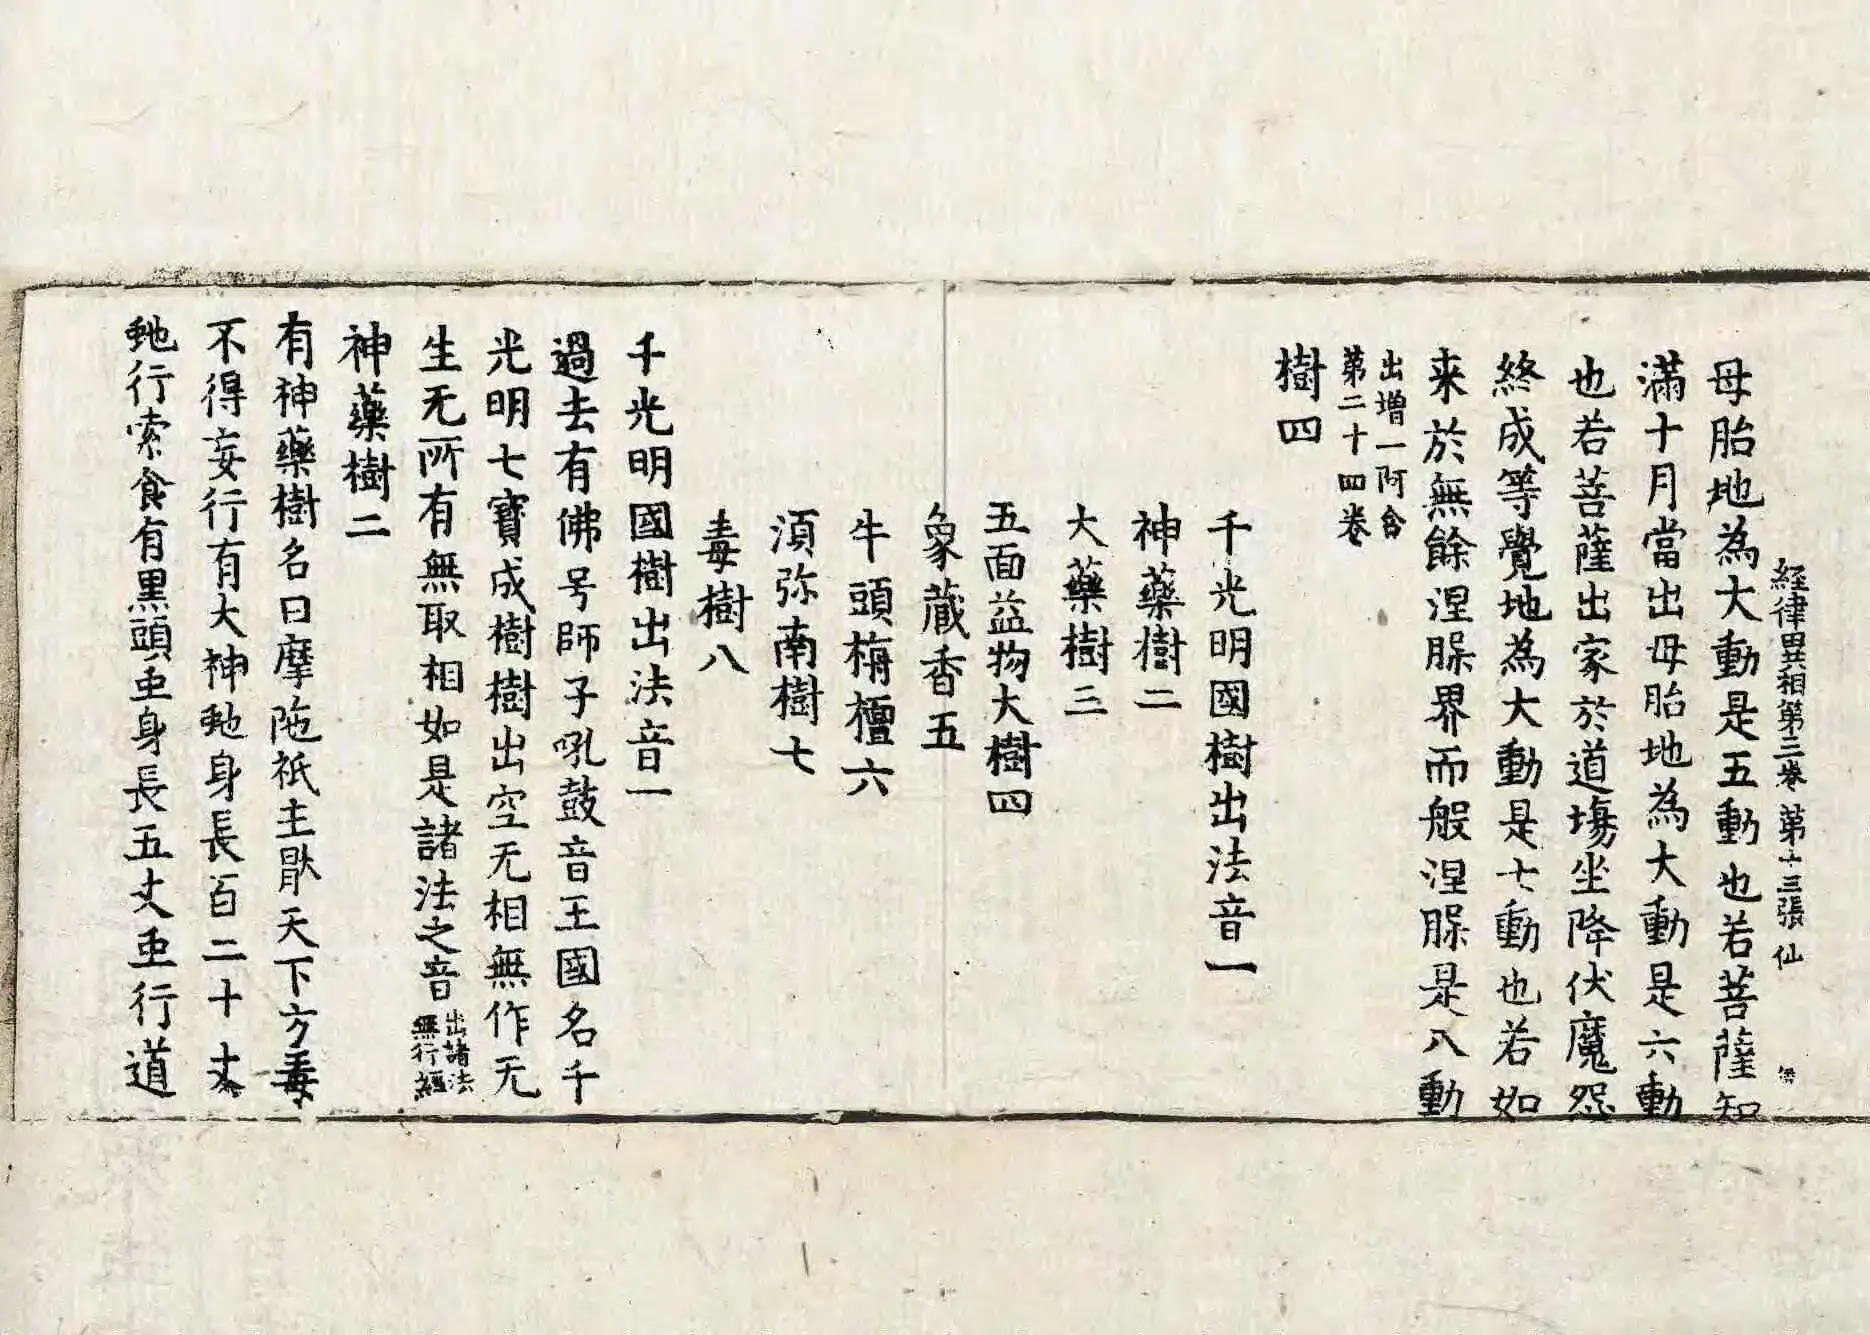 経律異相第三卷 第十三張 仙
母胎地為大動是五動也若菩薩知
滿十月當出母胎地為大動是六動
也若菩薩出家於道場坐降伏魔怨
終成等覺地為大動是七動也若如
来於無餘涅槃界而般涅槃是八動
出增一阿含
第二十四卷
樹四
千光明國樹出法音一
神藥樹二
大藥樹三
五面益物大樹四
象蔵香五
牛頭栴檀六
湏弥南樹七
毒樹八
千光明國樹出法音一
過去有佛号師子吼鼓音王國名千
光明七寶成樹樹出空无相無作无
生无所有無取相如是諸法之音
出諸法
無行經
神藥樹二
有神藥樹名曰摩陁祇主猒天下方毒
不得妄行有大神虵身長百二十丈
虵行索食有黒頭虫身長五丈虫行道